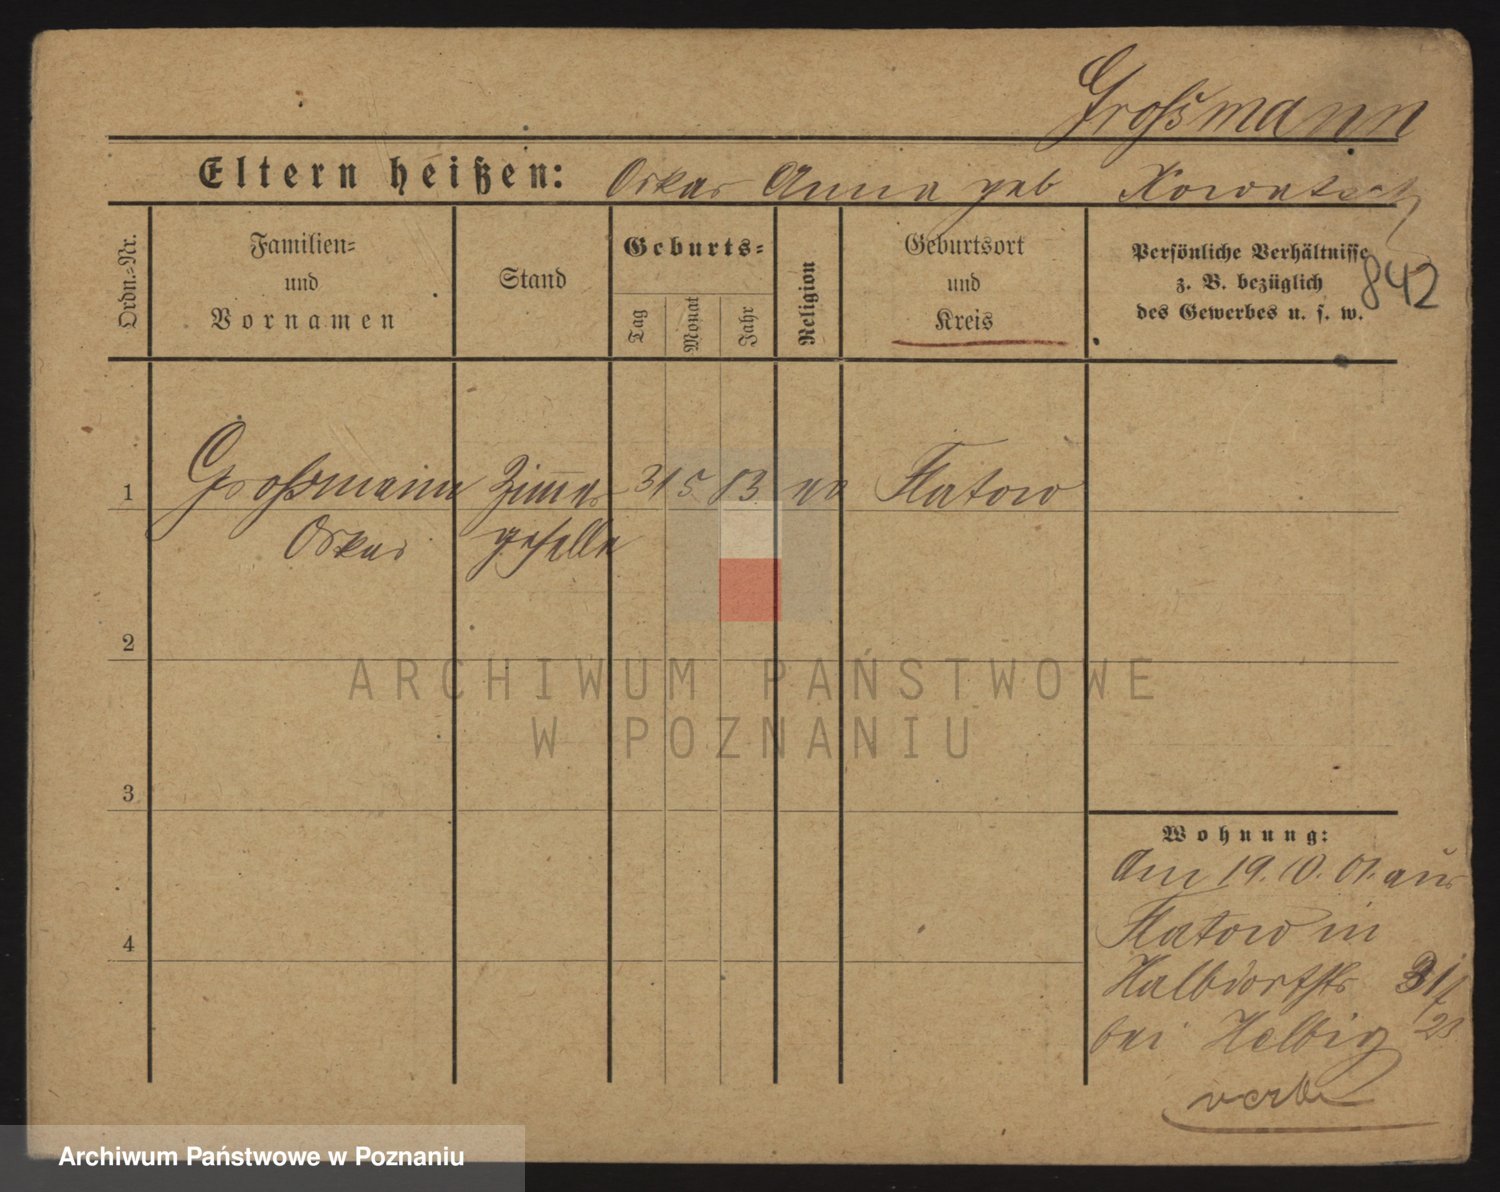 Großmann
Eltern heißen: Oskar Anna geb
Ordn.=Nr.
Familien=
und
Vornamen
Stand
Geburts=
Tag
Monat
Jahr
Religion
Geburtsort
und
Kreis
Persönliche Verhältnisse
z. B. bezüglich
des Gewerbes u. s. w.
842
1 Großmann Zimmer 31 5 83 ev Flatow
Oskar geselle
2
3
4
Wohnung:
Am 19. 01. aus
Flatow in
Halbdorfstr 31
bei Helbig 23
ARCHIWUM PAŃSTWOWE
W POZNANIU
Archiwum Państwowe w Poznaniu